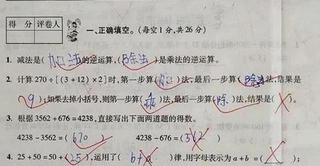 得分 评卷人
一、正确填空。(每空1分,共26分)
1. 减法是(加法)的逆运算,(除法)是乘法的逆运算。
2. 计算270÷[(3+12)×2]时,第一步算(加)法,最后一步算(除)法,结果是
(9);如果去掉小括号,则第一步算()法,最后一步算(除)法,结果是()。
3. 根据3562+676=4238,直接写出下面两道题的得数。
4238-3562=(676) 4238-676=()
4. 25+50=50+(25),运用了()律,用字母表示为a+b=()